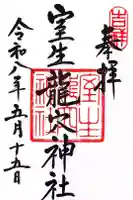 奉拝
室生龍穴神社
令和八年五月十五日